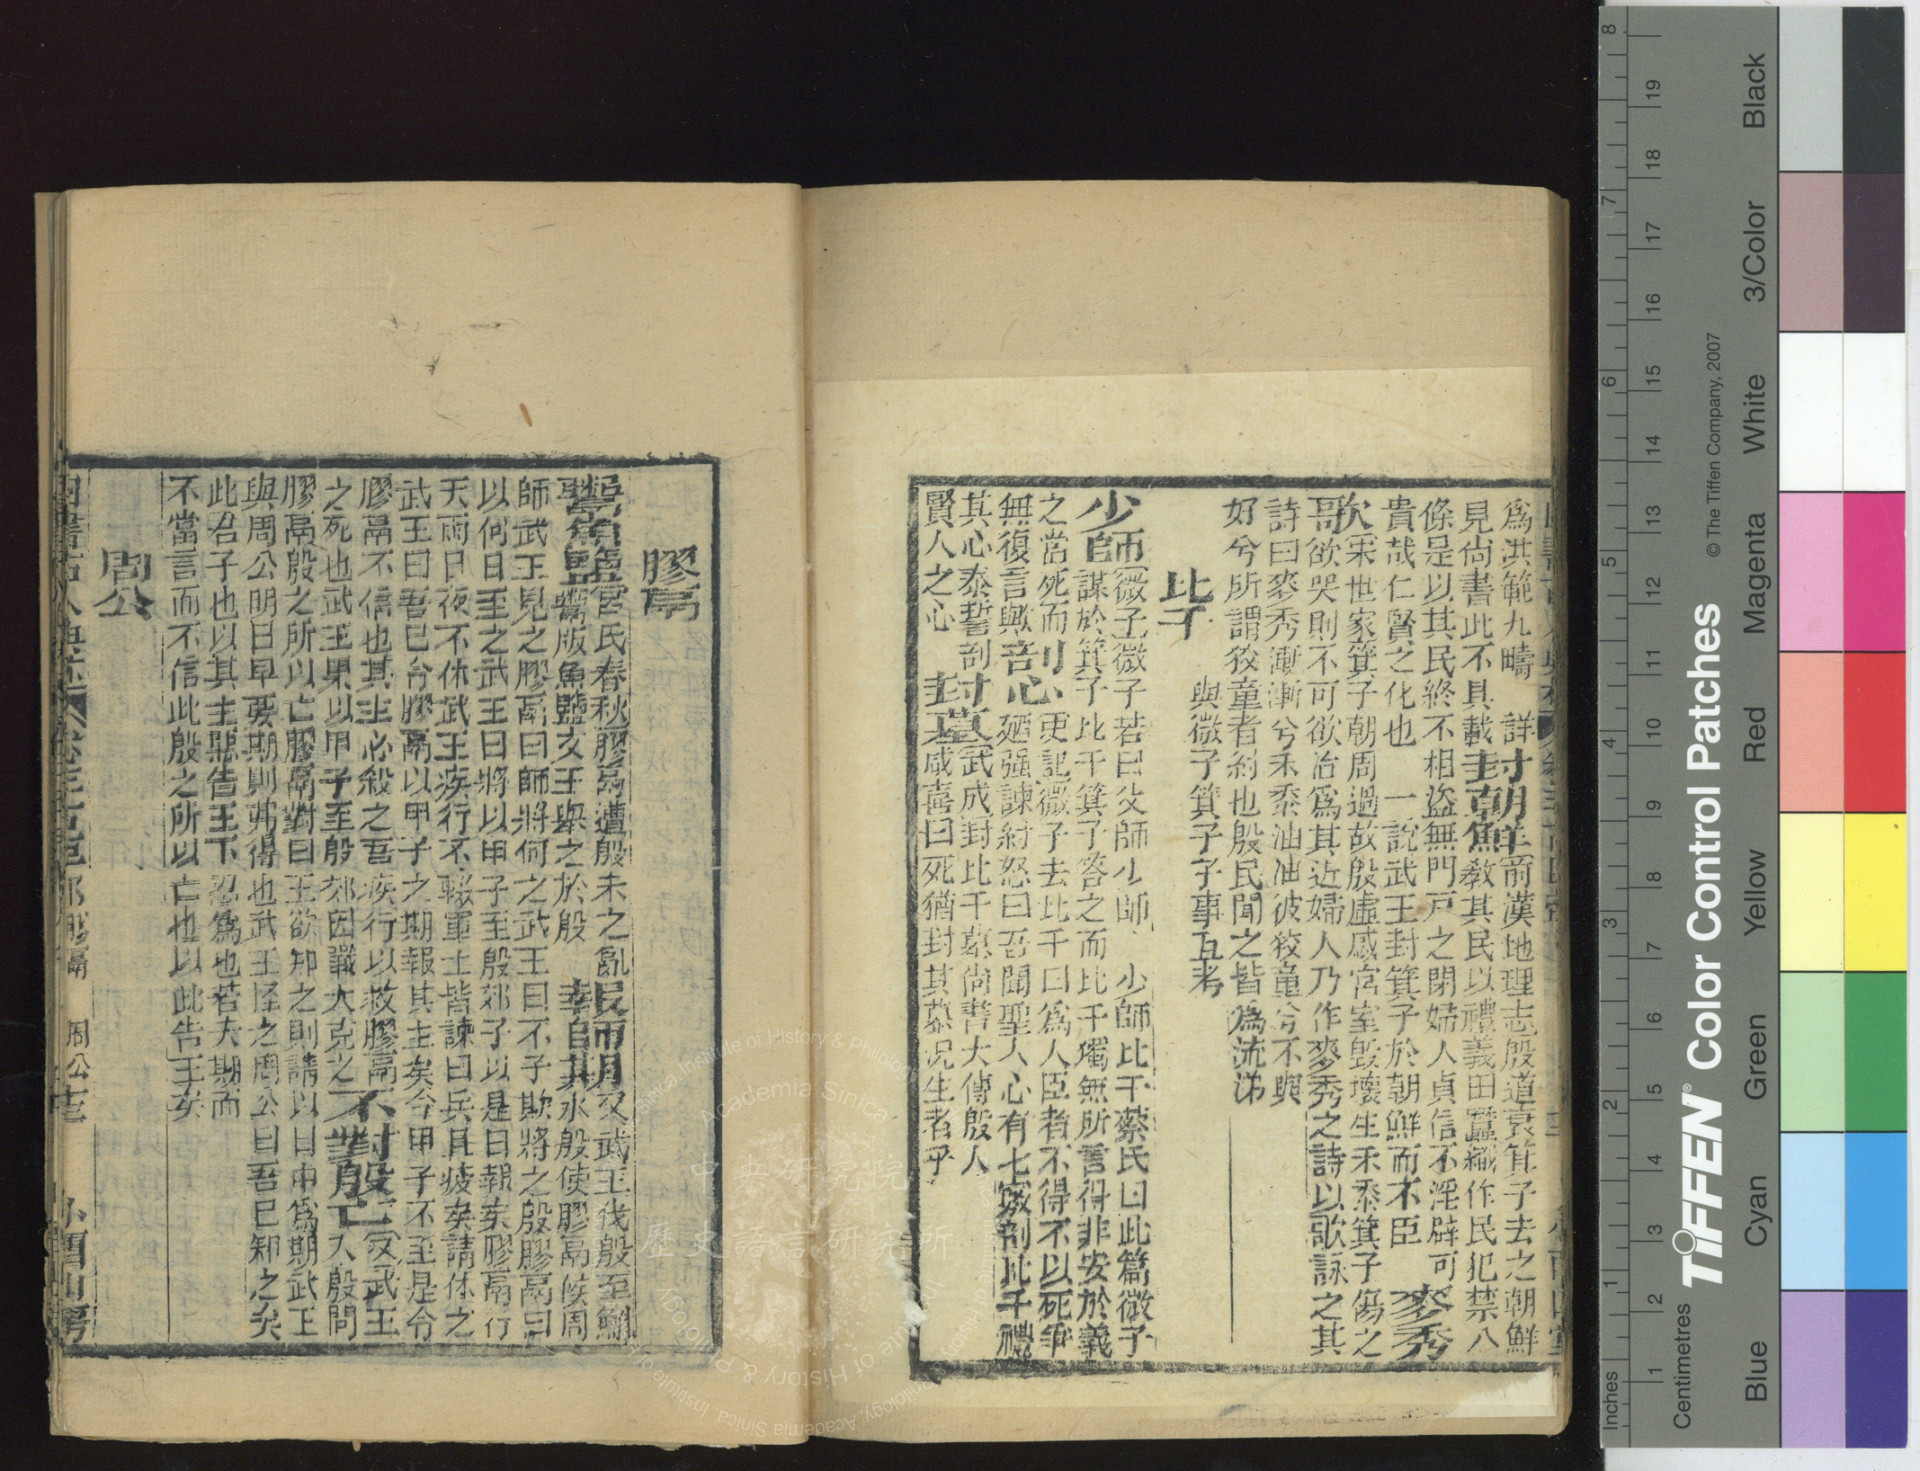 爲洪範九疇 詳封朝鮮前漢地理志殷道衰箕子去之朝鮮
見尚書此不具載 教其民以禮義田蠶織作民犯禁八
條是以其民終不相盜無門戸之閉婦人貞信不淫辟可
貴哉仁賢之化也 一說武王封箕子於朝鮮而不臣 麥秀
歌宋世家箕子朝周過故殷虛感宮室毀壞生禾黍箕子傷之
欲哭則不可欲泣爲其近婦人乃作麥秀之詩以歌詠之其
詩曰麥秀漸漸兮禾黍油油彼狡童兮不與
好兮所謂狡童者紂也殷民聞之皆爲流涕
與微子箕子事互考
比干
少師微子微子若曰父師少師 少師比干蔡氏曰此篇微子
謀於箕子比干箕子答之而比干獨無所言得非安於義
之當死而 剖心 史記微子去比干曰爲人臣者不得不以死爭
無復言歟 廼强諫紂怒曰吾聞聖人心有七竅剖比干觀
其心泰誓剖 封墓 武成封比干墓尚書大傳殷人
賢人之心 咸喜曰死猶封其墓况生者乎
膠鬲
舉魚鹽呂氏春秋膠鬲遭殷末之亂 報師期 又武王伐殷至鮪
鬻販魚鹽文王舉之於殷 水殷使膠鬲候周
師武王見之膠鬲曰師將何之武王曰不子欺將之殷膠鬲曰
以何日至之武王曰將以甲子至殷郊子以是日報矣膠鬲行
天雨日夜不休武王疾行不輟軍士皆諫曰兵且疲矣請休之
武王曰吾已令膠鬲以甲子之期報其主矣今甲子不至是令
膠鬲不信也其主必殺之吾疾行以救膠鬲 不對殷亡 又武王
之死也武王果以甲子至殷郊因戰大克之 入殷問
膠鬲殷之所以亡膠鬲對曰王欲知之則請以日中爲期武王
與周公明日早要期則弗得也武王怪之周公曰吾已知之矣
此君子也以其主惡告王不忍爲也若夫期而
不當言而不信此殷之所以亡也以此告王矣
周公
四書古人典林 卷三 古臣部 膠鬲 周公 小酉山房
Inches
Centimetres
TIFFEN Color Control Patches
© The Tiffen Company, 2007
Blue Cyan Green Yellow Red Magenta White 3/Color Black
中央研究院
歷史語言研究所
Institute of History & Philology, Academia Sinica